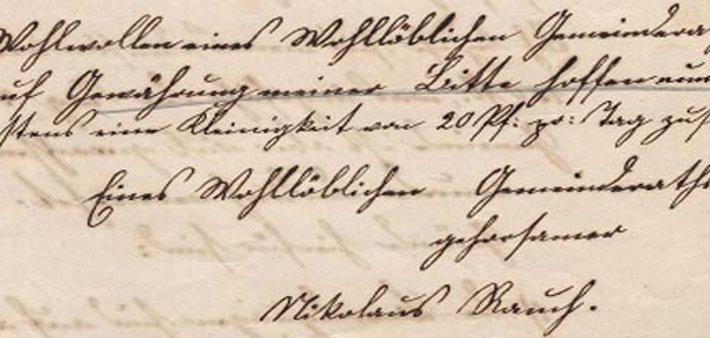 Wohlwollen eines Wohllöblichen Gemeindera
uf Gewährung meiner Bitte hoffen
stens eine Kleinigkeit von 20 Pf: pr: Tag zu
Eines Wohllöblichen Gemeinderaths
gehorsamer
Nikolaus Rauch.